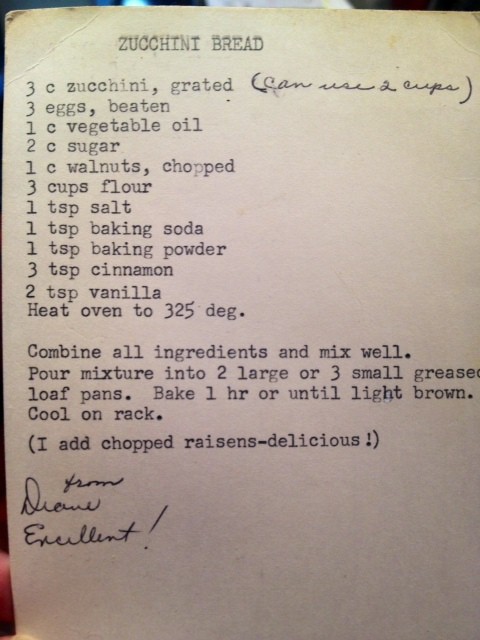 ZUCCHINI BREAD
3 c zucchini, grated (can use 2 cups)
3 eggs, beaten
1 c vegetable oil
2 c sugar
1 c walnuts, chopped
3 cups flour
1 tsp salt
1 tsp baking soda
1 tsp baking powder
3 tsp cinnamon
2 tsp vanilla
Heat oven to 325 deg.
Combine all ingredients and mix well.
Pour mixture into 2 large or 3 small greased
loaf pans. Bake 1 hr or until light brown.
Cool on rack.
(I add chopped raisens-delicious!)
from
Diane
Excellent!